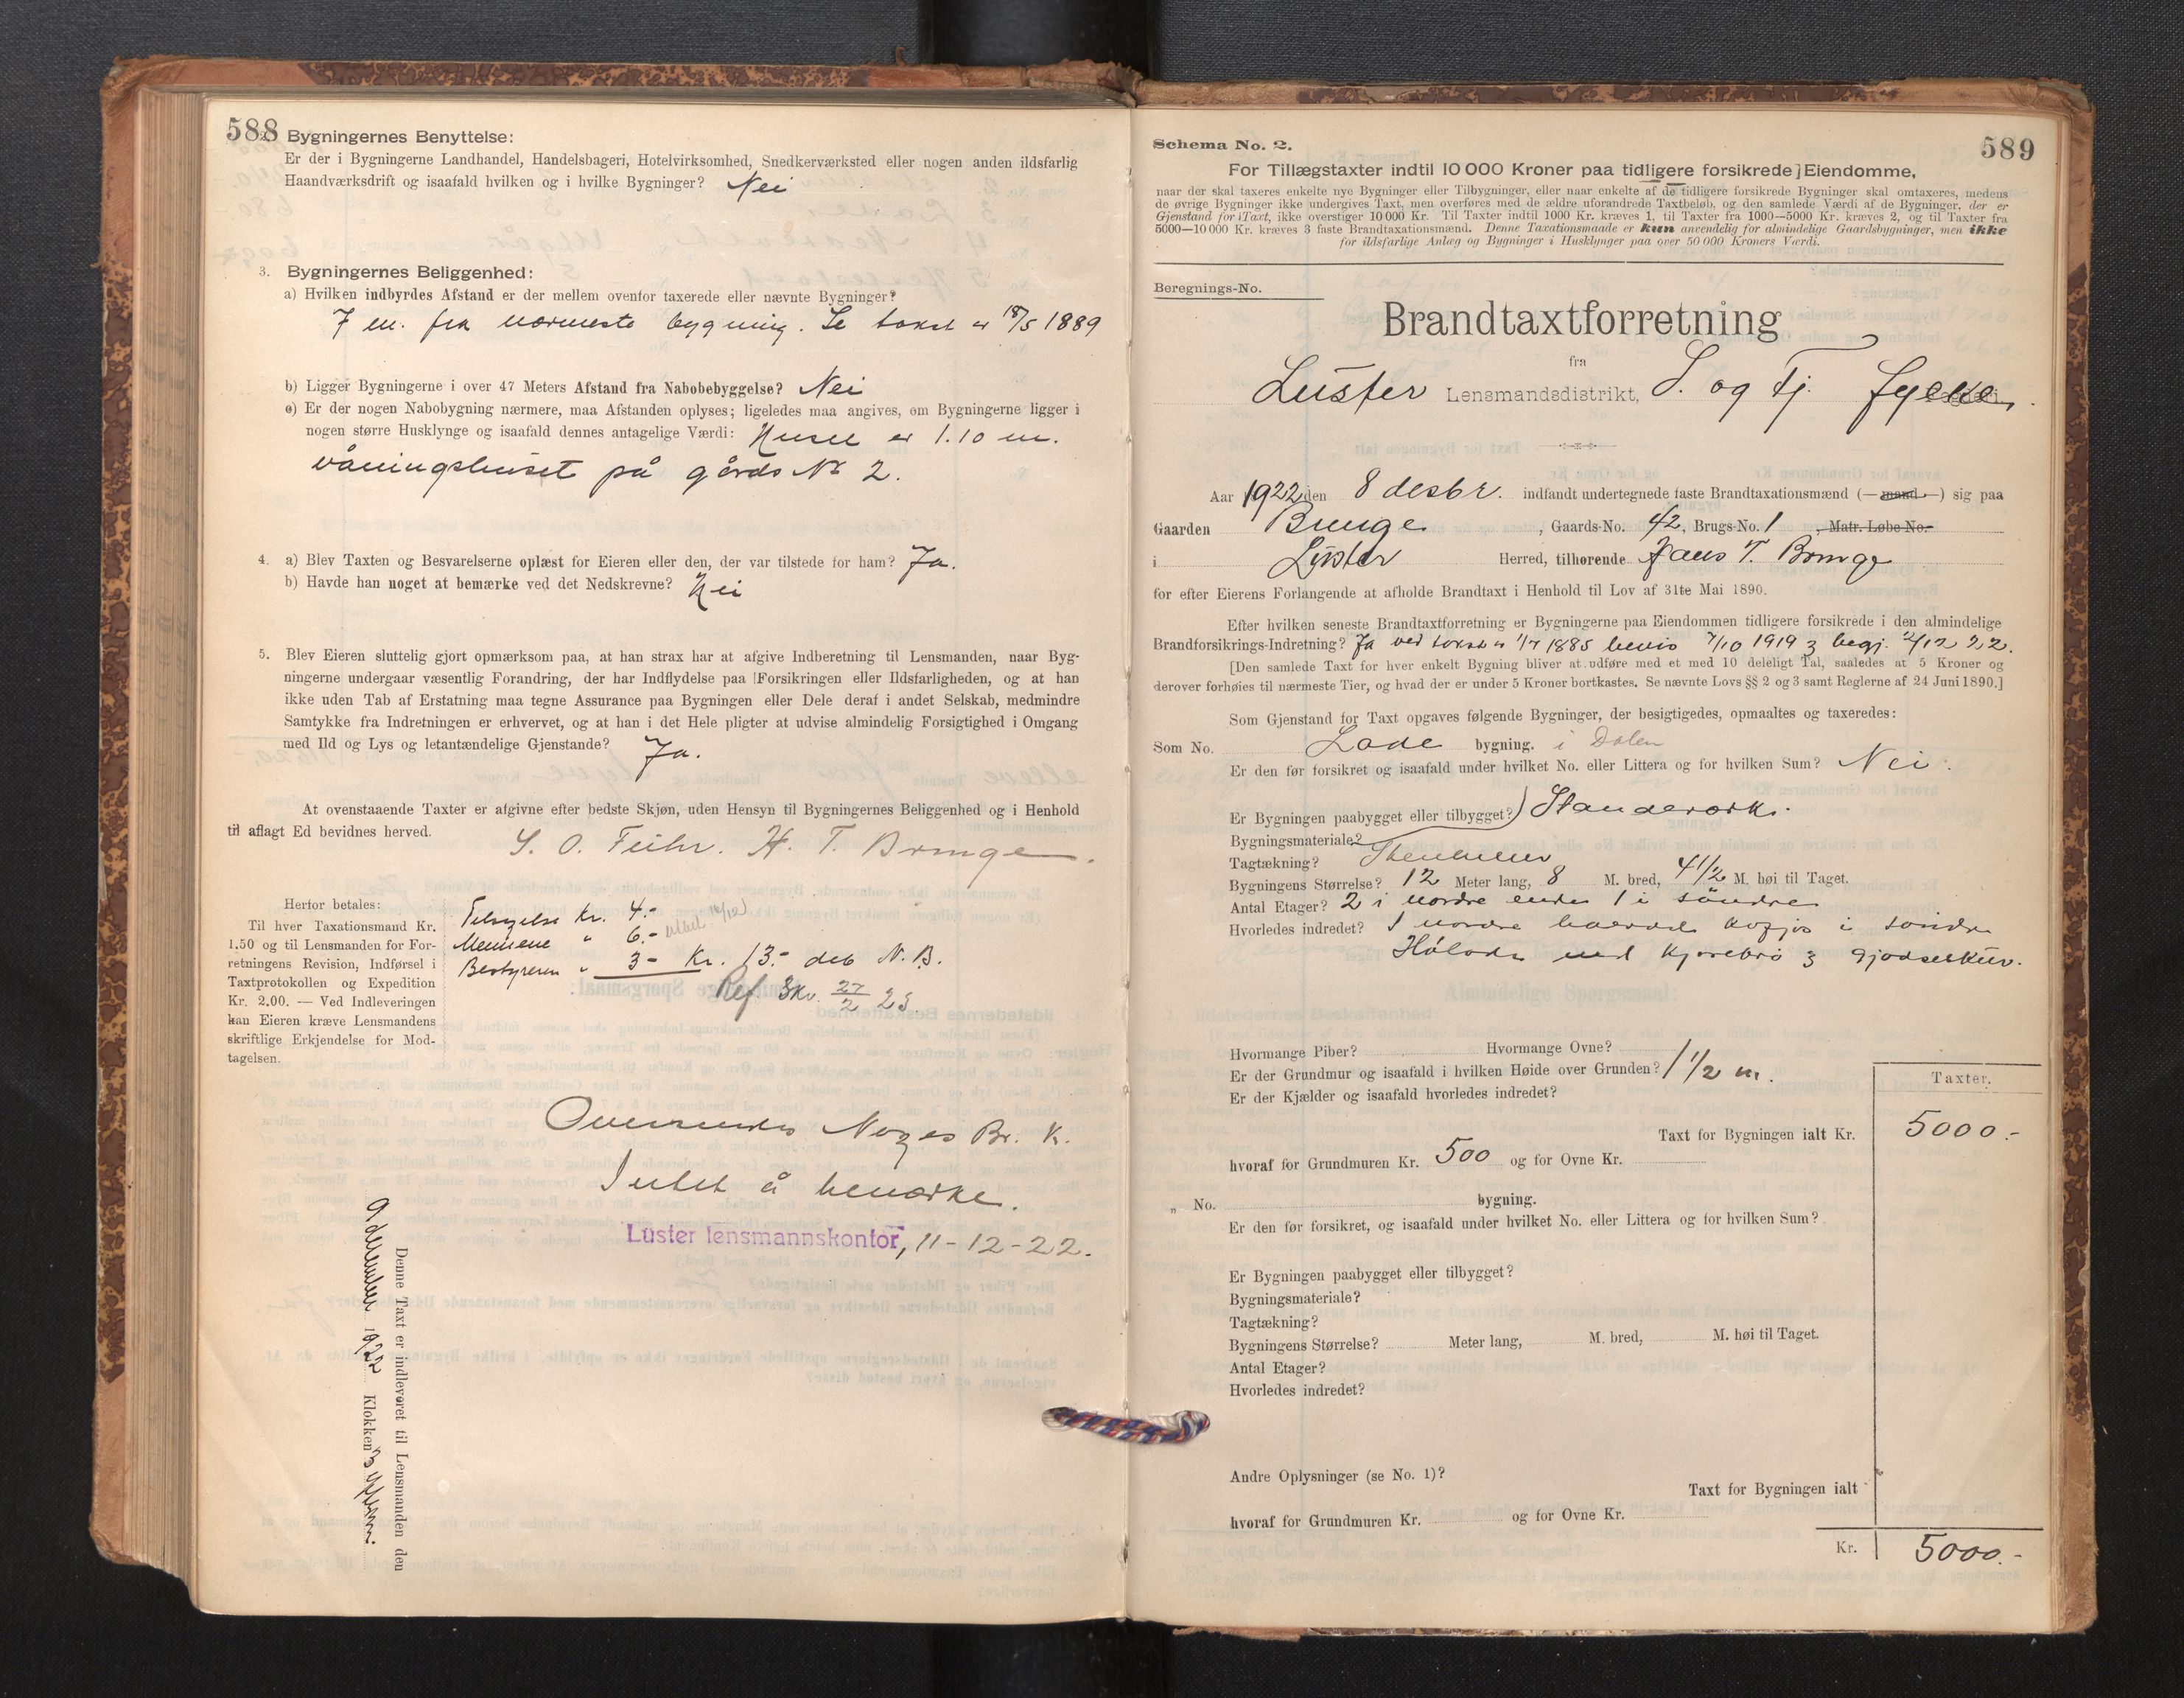 588
2. Bygningernes Benyttelse:
Er der i Bygningerne Landhandel, Handelsbageri, Hotelvirksomhed, Snedkerværksted eller nogen anden ildsfarlig
Haandværksdrift og isaafald hvilken og i hvilke Bygninger? Nei
3. Bygningernes Beliggenhed:
a) Hvilken indbyrdes Afstand er der mellem ovenfor taxerede eller nævnte Bygninger?
7 m. fra nærmeste bygning. Se takst av 18/5 1889
b) Ligger Bygningerne i over 47 Meters Afstand fra Nabobebyggelse? Nei
c) Er der nogen Nabobygning nærmere, maa Afstanden oplyses; ligeledes maa angives, om Bygningerne ligger i
nogen større Husklynge og isaafald dennes antagelige Værdi: 1.10 m.
våningshuset på gårds No 2.
4. a) Blev Taxten og Besvarelserne oplæst for Eieren eller den, der var tilstede for ham? Ja.
b) Havde han noget at bemærke ved det Nedskrevne? Nei
5. Blev Eieren sluttelig gjort opmærksom paa, at han strax har at afgive Indberetning til Lensmanden, naar Byg-
ningerne undergaar væsentlig Forandring, der har Indflydelse paa Forsikringen eller Ildsfarligheden, og at han
ikke uden Tab af Erstatning maa tegne Assurance paa Bygningen eller Dele deraf i andet Selskab, medmindre
Samtykke fra Indretningen er erhvervet, og at han i det Hele pligter at udvise almindelig Forsigtighed i Omgang
med Ild og Lys og letantændelige Gjenstande? Ja.
At ovenstaaende Taxter er afgivne efter bedste Skjøn, uden Hensyn til Bygningernes Beliggenhed og i Henhold
til aflagt Ed bevidnes herved.
S. O. Feihr. H. T. Bringe.
Herfor betales:
Til hver Taxationsmand Kr.
1.50 og til Lensmanden for For-
retningens Revision, Indførsel i
Taxtprotokollen og Expedition
Kr. 2.00. — Ved Indleveringen
kan Eieren kræve Lensmandens
skriftlige Erkjendelse for Mod-
tagelsen.
Kr. 4.-
Mennene " 6.-
Bestyreren " 3- Kr. 13.- deb N.B.
Ref. Skr. 27/2 23.
Oversendes Norges Br. K.
Intet å bemerke.
Luster lensmannskontor, 11-12-22.
Denne Taxt er indleveret til Lensmanden den
9 desember 1922 Klokken 3
589
Schema No. 2.
For Tillægstaxter indtil 10 000 Kroner paa tidligere forsikrede Eiendomme,
naar der skal taxeres enkelte nye Bygninger eller Tilbygninger, eller naar enkelte af de tidligere forsikrede Bygninger skal omtaxeres, medens
de øvrige Bygninger ikke undergives Taxt, men overføres med de ældre uforandrede Taxtbeløb, og den samlede Værdi af de Bygninger, der er
Gjenstand for Taxt, ikke overstiger 10 000 Kr. Til Taxter indtil 1000 Kr. kræves 1, til Taxter fra 1000—5000 Kr. kræves 2, og til Taxter fra
5000—10 000 Kr. kræves 3 faste Brandtaxationsmænd. Denne Taxationsmaade er kun anvendelig for almindelige Gaardsbygninger, men ikke
for ildsfarlige Anlæg og Bygninger i Husklynger paa over 50 000 Kroners Værdi.
Beregnings-No.
Brandtaxtforretning
fra
Luster Lensmandsdistrikt, S. og Fj. fylke
Aar 1922 den 8 desbr. indfandt undertegnede faste Brandtaxationsmænd (— mand —) sig paa
Gaarden Bringe, Gaards-No. 42, Brugs-No. 1 Matr. Løbe No.
i Lyster Herred, tilhørende Hans T. Bringe
for efter Eierens Forlangende at afholde Brandtaxt i Henhold til Lov af 31te Mai 1890.
Efter hvilken seneste Brandtaxtforretning er Bygningerne paa Eiendommen tidligere forsikrede i den almindelige
Brandforsikrings-Indretning? Ja ved takst av 1/7 1885 bevis 7/10 1919 begj. 2/12 22.
[Den samlede Taxt for hver enkelt Bygning bliver at udføre med et med 10 deleligt Tal, saaledes at 5 Kroner og
derover forhøies til nærmeste Tier, og hvad der er under 5 Kroner bortkastes. Se nævnte Lovs §§ 2 og 3 samt Reglerne af 24 Juni 1890.]
Som Gjenstand for Taxt opgaves følgende Bygninger, der besigtigedes, opmaaltes og taxeredes:
Som No. Lade bygning. i Dalen
Er den før forsikret og isaafald under hvilket No. eller Littera og for hvilken Sum? Nei.
Er Bygningen paabygget eller tilbygget? Standerverk.
Bygningsmateriale?
Tagtækning?
Bygningens Størrelse? 12 Meter lang, 8 M. bred, 4 1/2 M. høi til Taget.
Antal Etager? 2 i nordre ende 1 i søndre
Hvorledes indredet? I nordre i søndre
Hølade med kjørebro gjødselkjæl.
Hvormange Piber? Hvormange Ovne?
Er der Grundmur og isaafald i hvilken Høide over Grunden? 1 1/2 m.
Er der Kjælder og isaafald hvorledes indredet?
Taxter.
Taxt for Bygningen ialt Kr. 5000.-
hvoraf for Grundmuren Kr. 500 og for Ovne Kr.
" No. bygning.
Er den før forsikret, og isaafald under hvilket No. eller Littera og for hvilken Sum?
Er Bygningen paabygget eller tilbygget?
Bygningsmateriale?
Tagtækning?
Bygningens Størrelse? Meter lang, M. bred, M. høi til Taget.
Antal Etager?
Hvorledes indredet?
Andre Oplysninger (se No. 1)?
Taxt for Bygningen ialt
hvoraf for Grundmuren Kr. og for Ovne Kr.
Kr. 5000.-